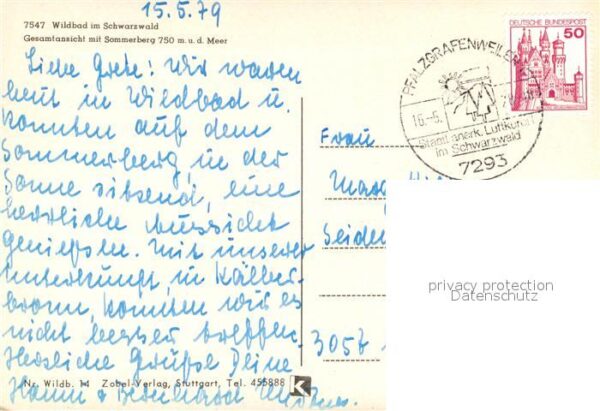 15.5.79
7547 Wildbad im Schwarzwald
Gesamtansicht mit Sommerberg 750 m. u. d. Meer
Liebe Grete! Wir waren
heut in Wildbad u.
konnten auf dem
Sommerberg, in der
Sonne sitzend, eine
herrliche Aussicht
genießen. Mit unserer
Unterkunft, in Kälber-
bronn, konnten wir es
nicht besser treffen.
Herzliche Grüße Deine
Hanni &
Nr. Wildb. 14 Zobel-Verlag, Stuttgart, Tel. 455888 K
DEUTSCHE BUNDESPOST
50
PFALZGRAFENWEILER
16.-5.
Staatl. anerk. Luftkurort
im Schwarzwald
7293
Frau
3057
privacy protection
Datenschutz